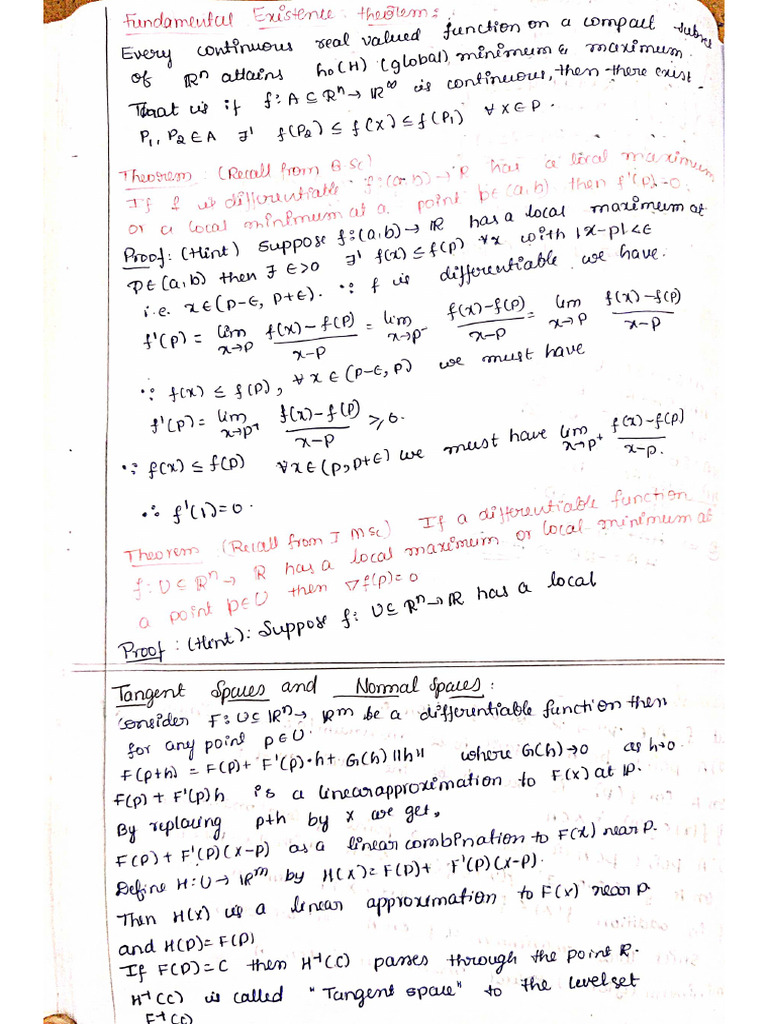 Fundamental Existence theorem:
Every continuous real valued function on a compact subset
of ℝⁿ attains ho(H) (global) minimum & maximum.
That is if f: A ⊆ ℝⁿ → ℝ^∞ is continuous, then there exist
P₁, P₂ ∈ A ∃' f(P₂) ≤ f(x) ≤ f(P₁) ∀ x ∈ P.
Theorem: (Recall from B.Sc)
If f is differentiable f:(a,b) → R has a local maximum
or a local minimum at a point p∈(a,b) then f'(p)=0.
Proof: (Hint) Suppose f:(a,b) → ℝ has a local maximum at
p∈(a,b) then ∃ ϵ>0 ∃' f(x) ≤ f(p) ∀x with |x-p|<ϵ
i.e. x∈(p-ϵ, p+ϵ). ∵ f is differentiable we have.
f'(p) = lim x→p f(x)-f(p)/x-p = lim x→p⁻ f(x)-f(p)/x-p = lim x→p f(x)-f(p)/x-p
∵ f(x) ≤ f(p), ∀ x ∈ (p-ϵ, p) we must have
f'(p) = lim x→p⁺ f(x)-f(p)/x-p ≥ 0.
∵ f(x) ≤ f(p) ∀x∈(p,p+ϵ) we must have lim x→p⁺ f(x)-f(p)/x-p.
∴ f'(1)=0.
Theorem (Recall from I MSc) If a differentiable function
f: U ⊆ ℝⁿ → ℝ has a local maximum or local minimum at
a point p∈U then ∇f(p)=0
Proof: (Hint): Suppose f: U⊆ℝⁿ→ℝ has a local
Tangent Spaces and Normal Spaces:
Consider F: U⊆ℝⁿ → ℝᵐ be a differentiable function then
for any point p∈U.
F(p+h) = F(p) + F'(p)·h + G(h)||h|| where G(h)→0 as h→0.
F(p) + F'(p)h is a linear approximation to F(x) at p.
By replacing p+h by x we get,
F(p) + F'(p)(x-p) as a linear combination to F(x) near p.
Define H: U → ℝᵐ by H(x) = F(p) + F'(p)(x-p).
Then H(x) is a linear approximation to F(x) near p
and H(p) = F(p)
If F(p) = C then H⁻¹(C) passes through the point R.
H⁻¹(C) is called "Tangent space" to the level set
F⁻¹(C)